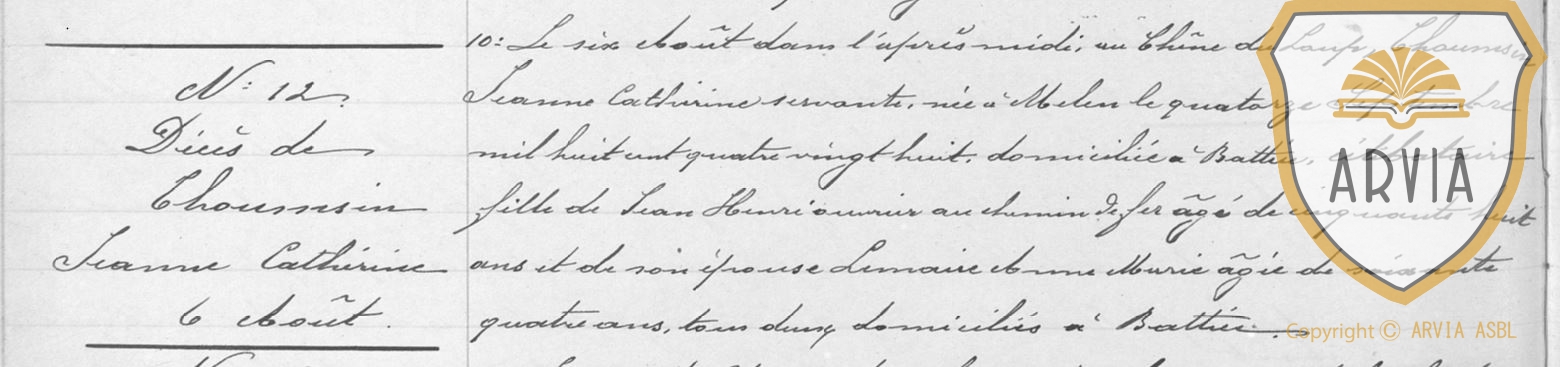 N: 12.
Décès de
Thoumsin
Jeanne Catherine
6 Août.
10: Le six Août dans l'après midi, au Chêne du Loup, Thoumsin
Jeanne Catherine servante, née à Melen le quatorze Septembre
mil huit cent quatre vingt huit, domiciliée à Battice, célibataire
fille de Jean Henri ouvrier au chemin de fer âgé de cinquante huit
ans et de son épouse Lemaire Anne Marie âgée de soixante
quatre ans, tous deux domiciliés à Battice.
ARVIA
Copyright © ARVIA ASBL